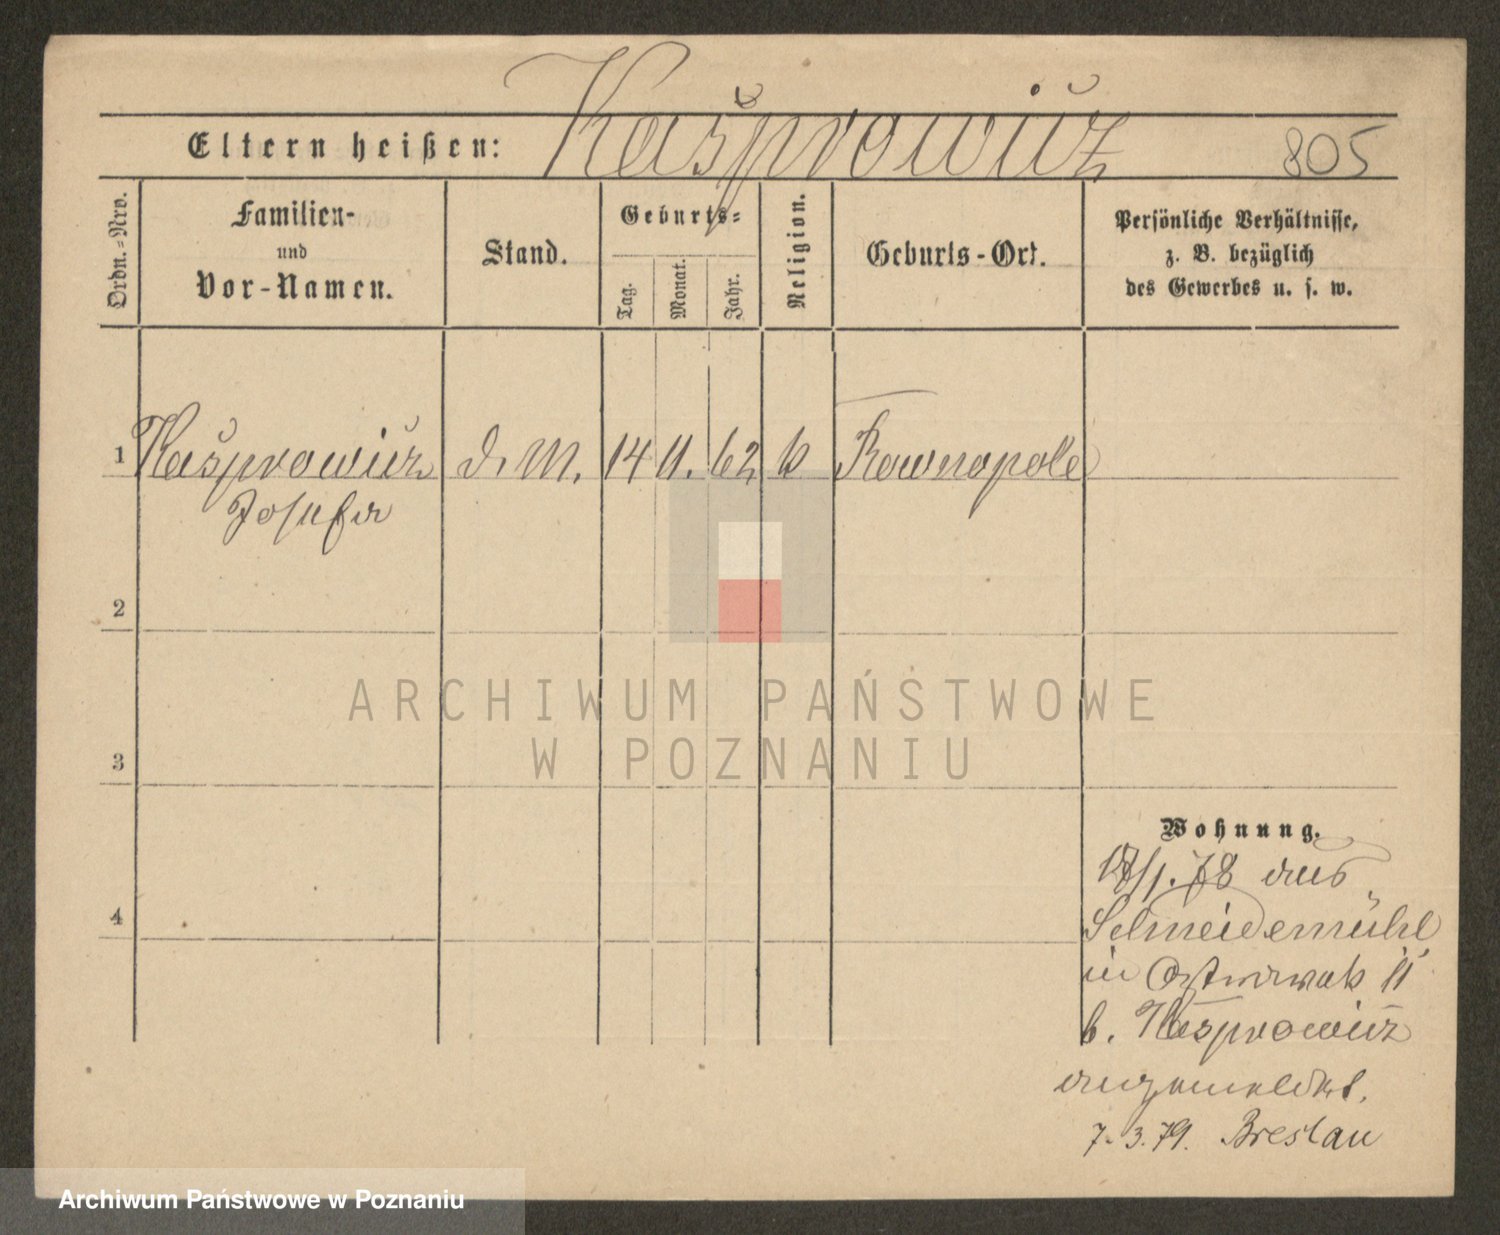 Kašprowicz
Eltern heißen:
805
Ordn.-Nro.
Familien-
und
Vor-Namen.
Stand.
Geburts-
Tag.
Monat.
Jahr.
Religion.
Geburts-Ort.
Persönliche Verhältnisse,
z. B. bezüglich
des Gewerbes u. s. w.
1 Kašprowicz d. M. 14 11. 62 k Rownopole
Josefa
2
3
4
ARCHIWUM PAŃSTWOWE
W POZNANIU
Wohnung.
/1. 78 aus
Schneidemühl
in Ostrowek 11
b. Kašprowicz
angemeldet.
7. 3. 79. Breslau
Archiwum Państwowe w Poznaniu